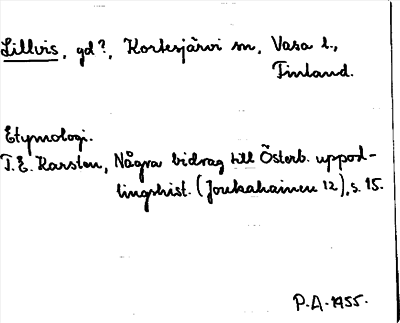 Lillvis, gd?, Kortesjärvi sn, Vasa l.,
Finland.
Etymologi.
T.E. Karsten, Några bidrag till Österb. uppod-
lingshist. (Joukahainen 12), s. 15.
P.A. 1955.